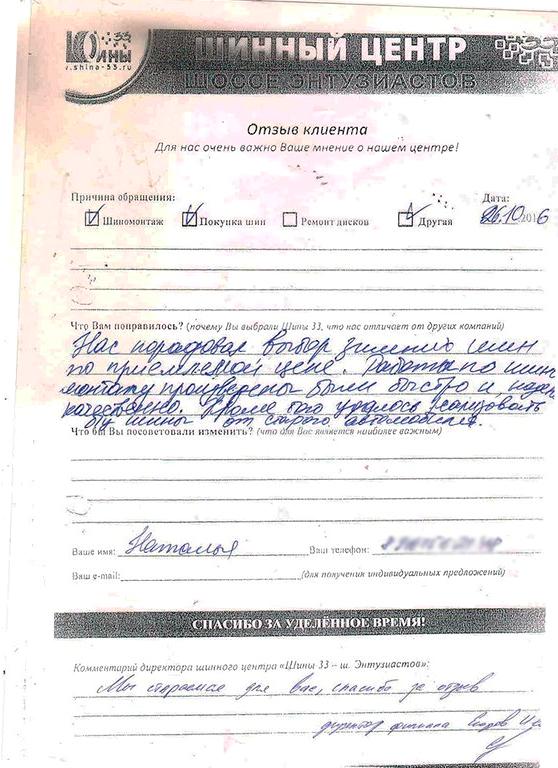 Шины 33
.shina-33.ru
ШИННЫЙ ЦЕНТР
ШОССЕ ЭНТУЗИАСТОВ
Отзыв клиента
Для нас очень важно Ваше мнение о нашем центре!
Причина обращения:
Дата:
Шиномонтаж Покупка шин Ремонт дисков Другая 26.10 2016
Что Вам понравилось? (почему Вы выбрали Шины 33, что нас отличает от других компаний)
Нас порадовал выбор зимних шин
по приемлемой цене. Работы по шин
монтажу произведены были быстро и
качественно. Кроме того удалось реализовать
б/у шины от старого автомобиля.
Что бы Вы посоветовали изменить? (что для Вас является наиболее важным)
Ваше имя: Наталья Ваш телефон:
Ваш e-mail: (для получения индивидуальных предложений)
СПАСИБО ЗА УДЕЛЁННОЕ ВРЕМЯ!
Комментарий директора шинного центра «Шины 33 – ш. Энтузиастов»:
Мы стараемся для вас, спасибо за отзыв
директор филиала